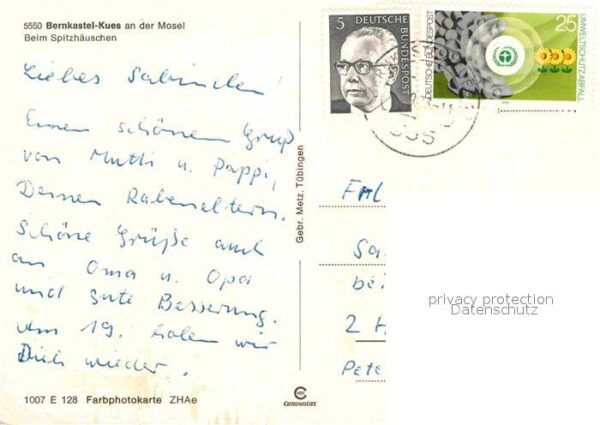 5550 Bernkastel-Kues an der Mosel
Beim Spitzhäuschen
Liebes Sabinchen!
Einen schönen Gruß
von Mutti u. Pappi,
Deinen Rabeneltern.
Schöne Grüße auch
an Oma u. Opa
und gute Besserung.
Am 19. holen wir
Dich wieder.
1007 E 128 Farbphotokarte ZHAe
Gebr. Metz, Tübingen
CHROMOLUX
5
DEUTSCHE
BUNDESPOST
DEUTSCHE BUNDESPOST
25
UMWELTSCHUTZ: ABFALL
555
Sa
bei
2 H
Pete
privacy protection
Datenschutz